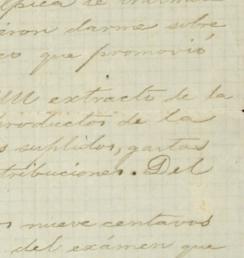 ópica de
eron darme sobre
co que promovió
Un extracto de la
productos de la
s suplidos, gastos
tribuciones. Del
os nueve centavos
del exámen que